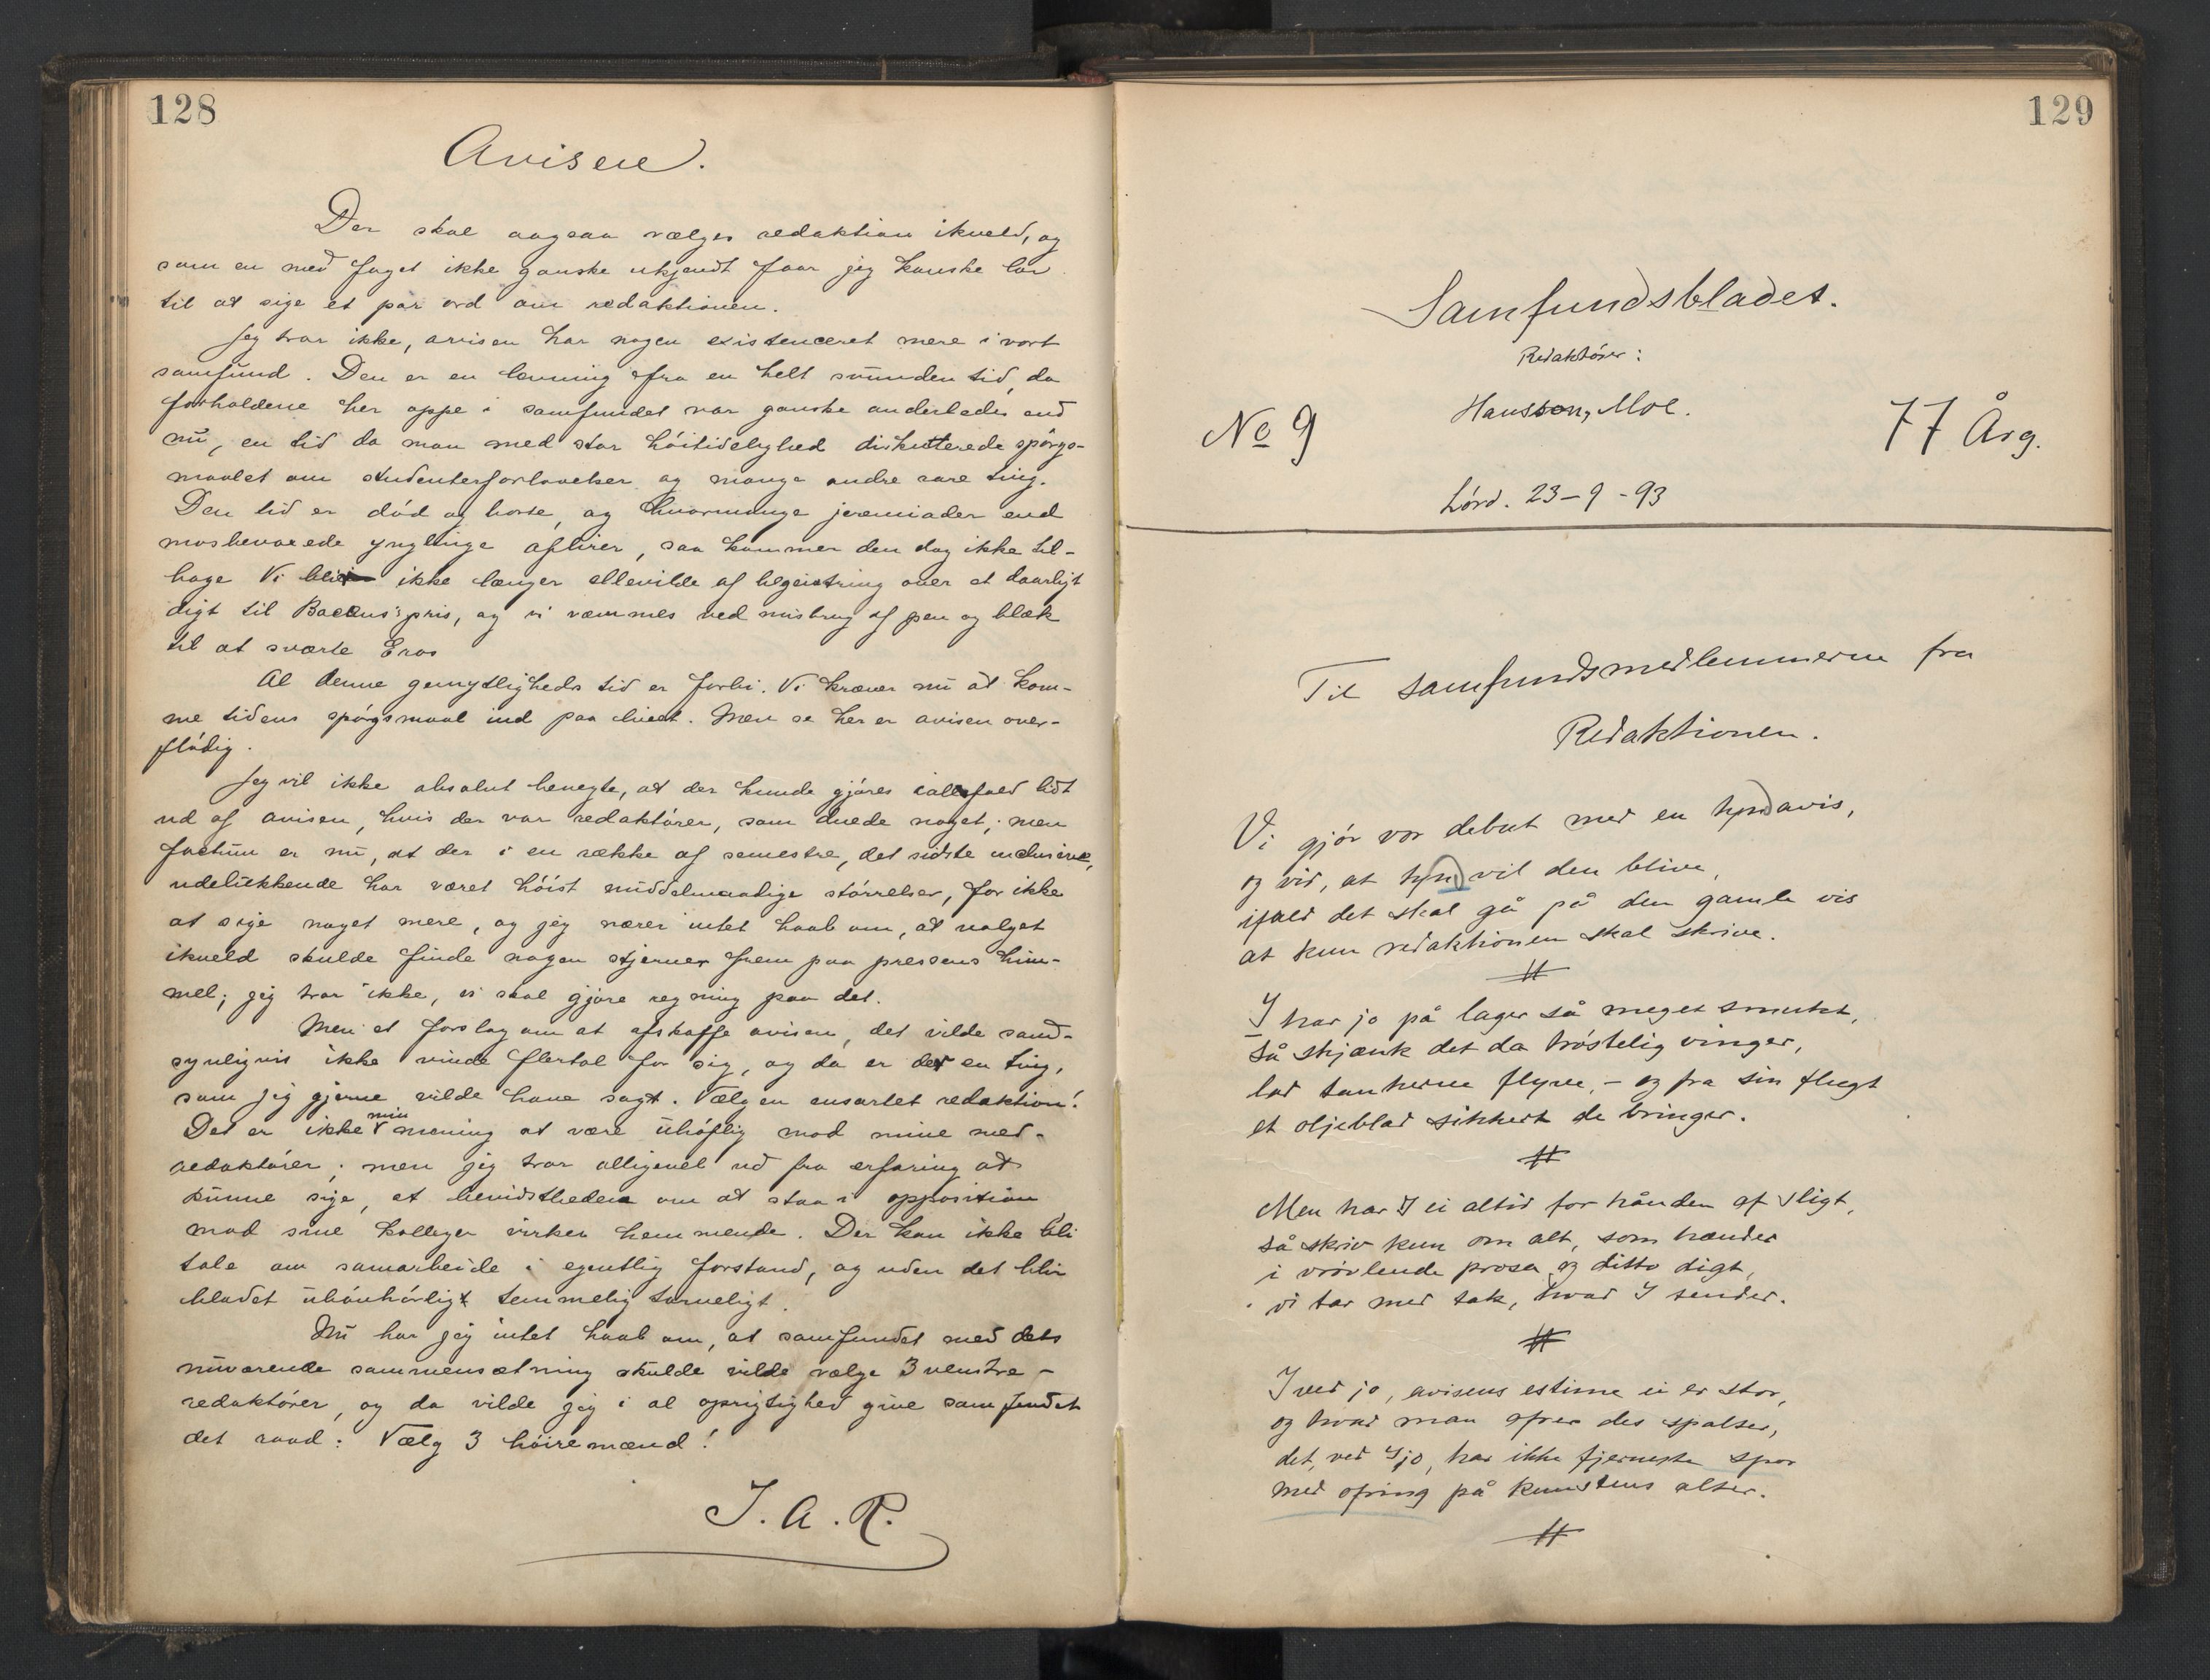 128
Avisen.
Der skal ogsaa vælges redaktion ikveld, og
som en med faget ikke ganske ukjendt faar jeg kanske lov
til at sige et par ord om redaktionen.
Jeg tror ikke, avisen har nogen existenceret mere i vort
samfund. Den er en levning fra en helt svunden tid, da
forholdene her oppe i samfundet var ganske anderledes end
nu, en tid da man med stor höitidelighed diskutterede spörgs-
maalet om studenterforlovelser og mange andre rare ting.
Den tid er död og borte, og hvormange jeremiader end
mosbevoxede ynglinge aflirer, saa kommer den dog ikke til-
bage Vi blir ikke længer ellevilde af begeistring over et daarligt
digt til Baccus's pris, og vi væmmes ved misbrug af pen og blæk
til at sværte Eros
Al denne gemytligheds tid er forbi. Vi kræver nu at kom-
me tidens spörgsmaal ind paa livet. Men se her er avisen over-
flödig.
Jeg vil ikke absolut benegte, at der kunde gjöres ialfald lidt
ud af avisen, hvis der var redaktörer, som duede noget; men
factum er nu, at der i en række af semestre, det sidste inclusive,
udelukkende har været höist middelmaadige störrelser, for ikke
at sige noget mere, og jeg nærer intet haab om, at valget
ikveld skulde finde nogen stjerner frem paa pressens him-
mel; jeg tror ikke, vi skal gjöre regning paa det.
Men et forslag om at afskaffe avisen, det vilde sand-
synligvis ikke vinde flertal for sig, og da er det en ting,
som jeg gjerne vilde have sagt. Vælg en ensartet redaktion!
Det er ikke min mening at være uhöflig mod mine med-
redaktörer; men jeg tror alligevel ud fra erfaring at
kunne sige, at bevidstheden om at staa i opposition
mod sine kolleger virker hemmende. Der kan ikke bli
tale om samarbeide i egentlig forstand, og uden det blir
bladet ubönhörligt temmelig tarveligt.
Nu har jeg intet haab om, at samfundet med dets
nuværende sammensætning skulde ville vælge 3 venstre-
redaktörer, og da vilde jeg i al oprigtighed give samfundet
det raad: Vælg 3 höiremænd!
J. A. R.
129
Samfundsbladet.
Redaktörer:
Hansson, Moe.
No 9
77 Årg.
Lörd. 23-9-93
Til samfundsmedlemmerne fra
Redaktionen.
Vi gjör vor debut med en tynd avis,
og vid, at tynd vil den blive,
ifald det skal gå på den gamle vis
at kun redaktionen skal skrive.
#
I har jo på lager så meget smukt,
så skjænk det da tröstelig vinger,
lad tankerne flyve, - og fra sin flugt
et oljeblad sikkert de bringer.
#
Men har I ei altid for hånden af sligt,
så skriv kun om alt, som hænder
i vrövlende prosa og ditto digt,
vi tar med tak, hvad I sender.
#
I ved jo, avisens estime ei er stor,
og hvad man ofrer des spalter,
det, ved I jo, har ikke fjerneste spor
med ofring på kunstens alter.
#